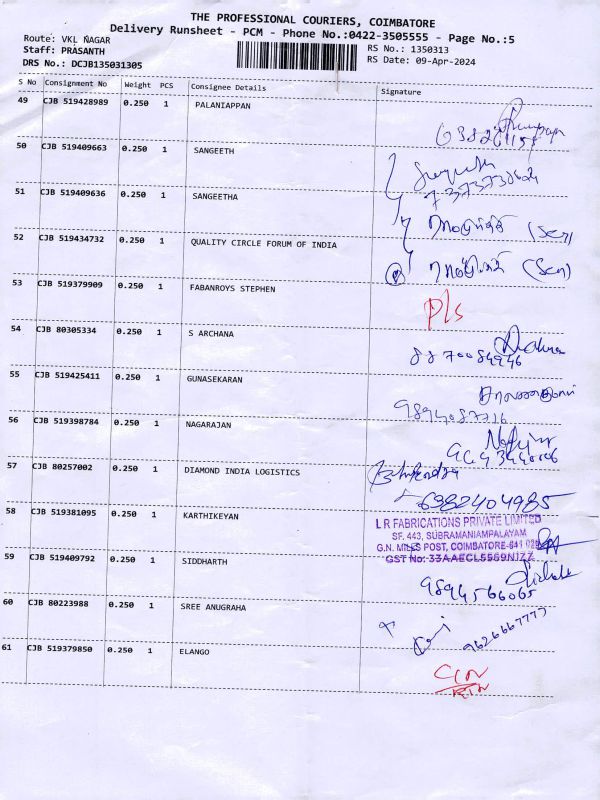 THE PROFESSIONAL COURIERS, COIMBATORE
Delivery Runsheet - PCM - Phone No.:0422-3505555 - Page No.:5
Route: VKL NAGAR
RS No.: 1350313
Staff: PRASANTH
RS Date: 09-Apr-2024
DRS No.: DCJB135031305
S No Consignment No Weight PCS Consignee Details Signature
49 CJB 519428989 0.250 1 PALANIAPPAN
50 CJB 519409663 0.250 1 SANGEETH
7373730624
51 CJB 519409636 0.250 1 SANGEETHA
(Sen)
52 CJB 519434732 0.250 1 QUALITY CIRCLE FORUM OF INDIA
(Sen)
53 CJB 519379909 0.250 1 FABANROYS STEPHEN
P/s
54 CJB 80305334 0.250 1 S ARCHANA
8870084946
55 CJB 519425411 0.250 1 GUNASEKARAN
9894087716
56 CJB 519398784 0.250 1 NAGARAJAN
57 CJB 80257002 0.250 1 DIAMOND INDIA LOGISTICS
6382404985
58 CJB 519381095 0.250 1 KARTHIKEYAN
L R FABRICATIONS PRIVATE LIMITED
SF. 443, SUBRAMANIAMPALAYAM
G.N. MILLS POST, COIMBATORE-641 029
GST No: 33AAECL5569N1ZZ
59 CJB 519409792 0.250 1 SIDDHARTH
9894566065
60 CJB 80223988 0.250 1 SREE ANUGRAHA
9626667777
61 CJB 519379850 0.250 1 ELANGO